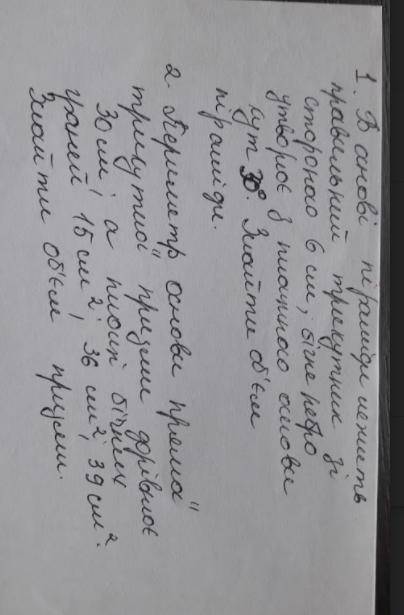 1. В основі піраміди лежить
правильний трикутник зі
стороною 6 см, бічне ребро
утворює з площиною основи
кут 30°. Знайти об'єм
піраміди.
2. Периметр основи прямої
трикутної призми дорівнює
30 см, а площі бічних
граней 15 см², 36 см², 39 см².
Знайти об'єм призми.